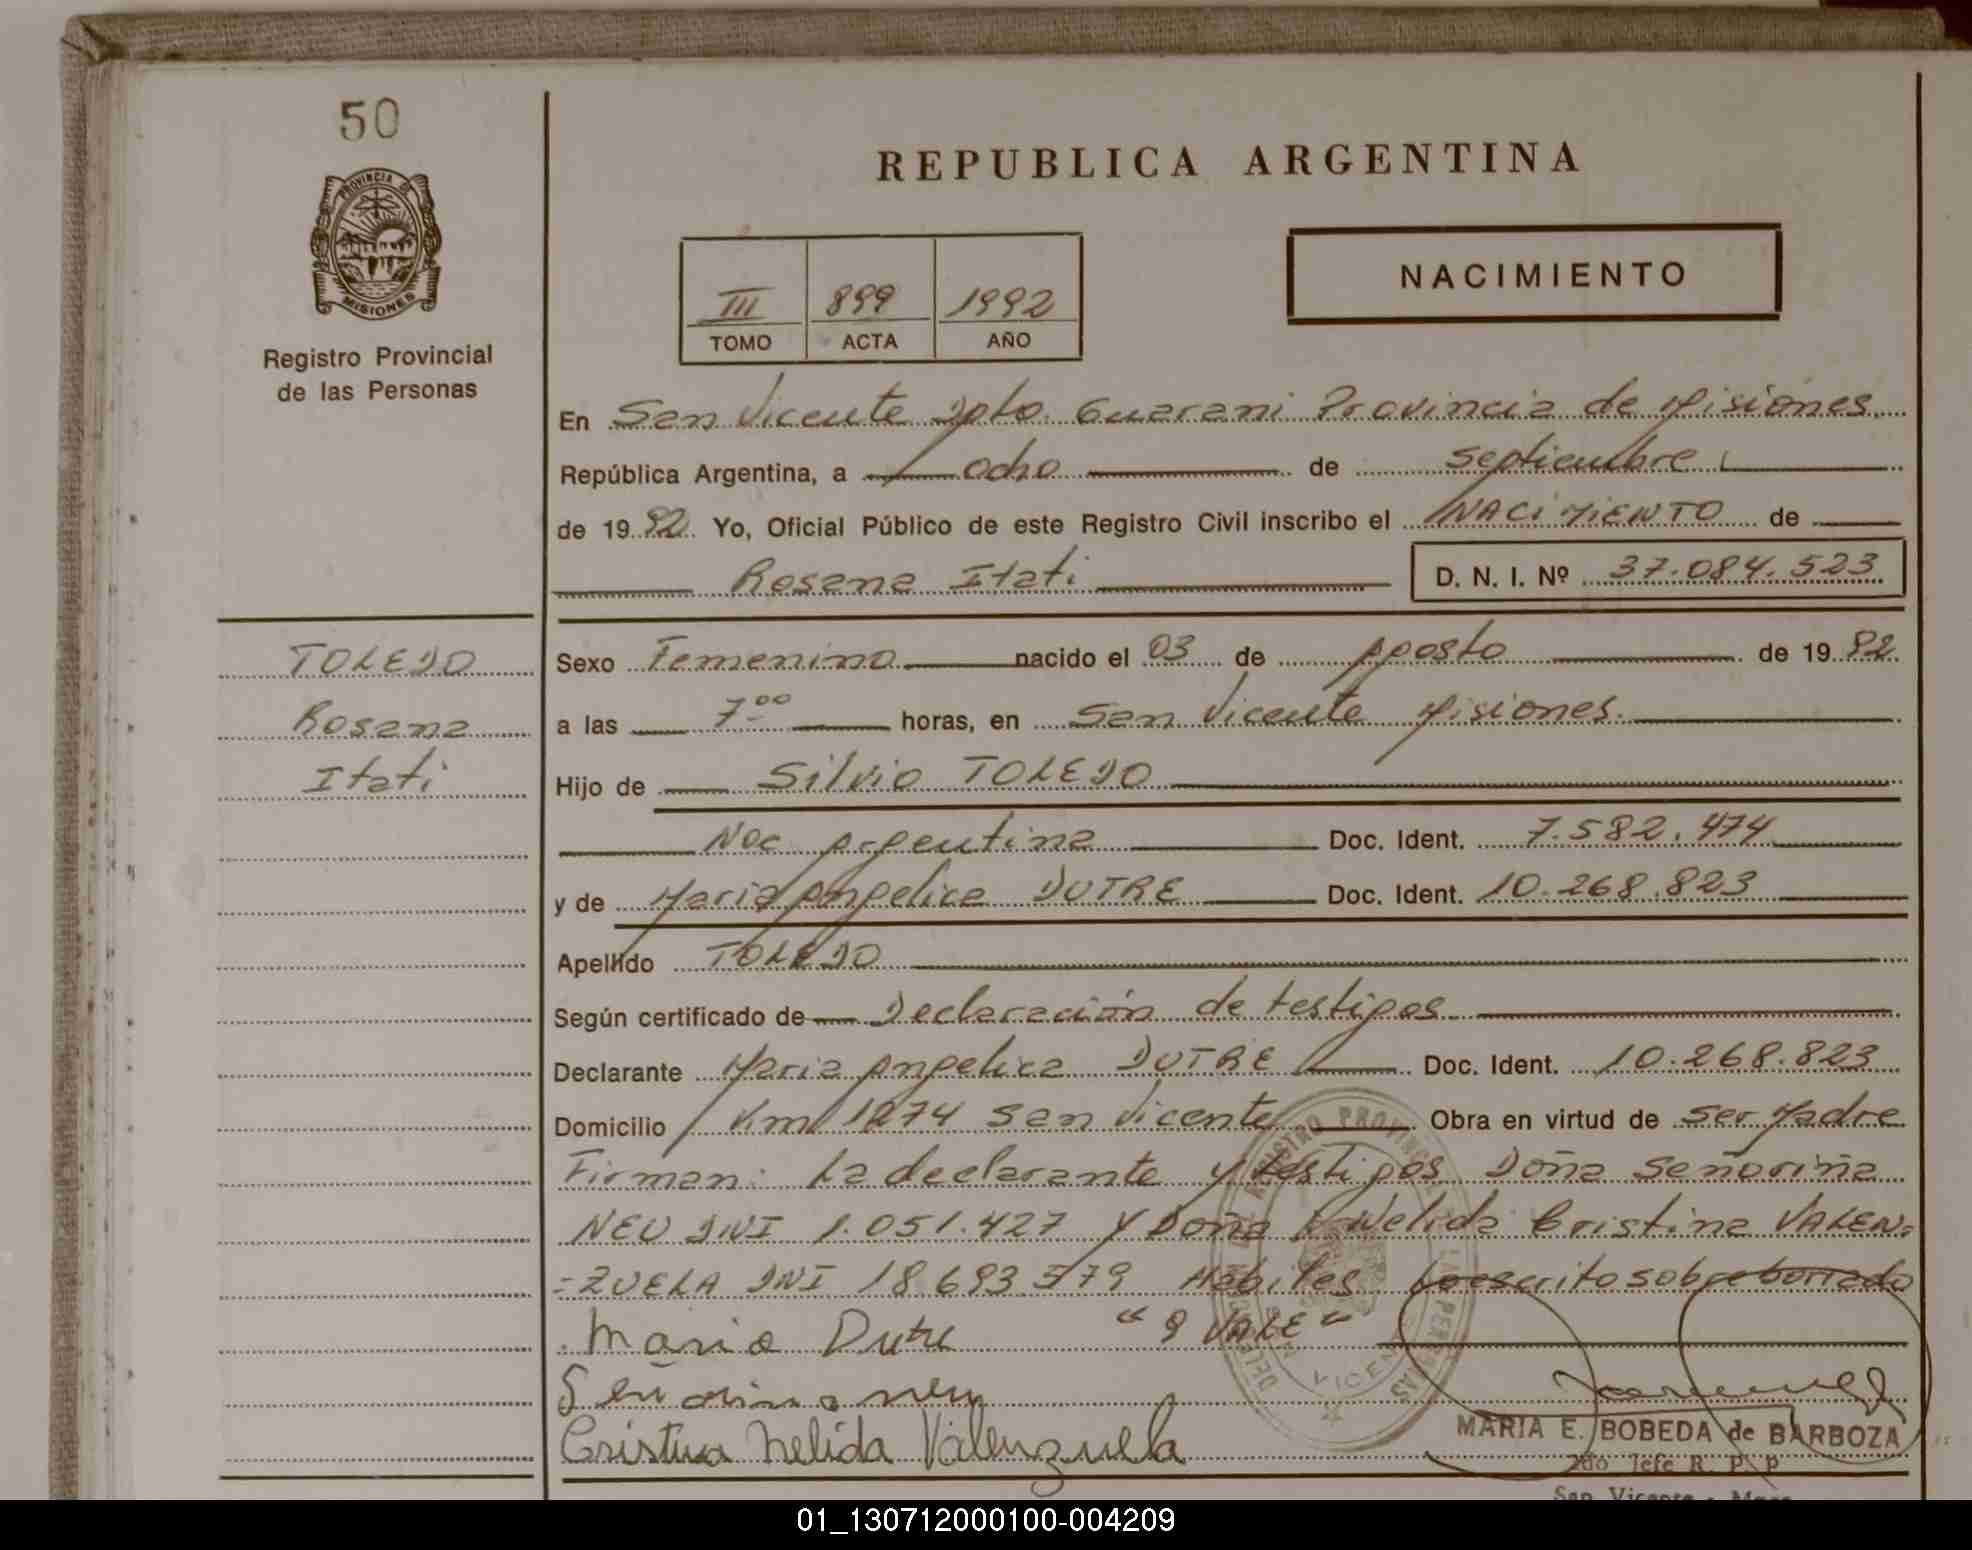 50
PROVINCIA DE
MISIONES
Registro Provincial
de las Personas
REPUBLICA ARGENTINA
III 899 1992
TOMO ACTA AÑO
NACIMIENTO
En San Vicente Dpto. Guarani Provincia de Misiones
República Argentina, a ocho de septiembre
de 1992 Yo, Oficial Público de este Registro Civil inscribo el NACIMIENTO de
Rosana Itati D. N. I. Nº 37.084.523
TOLEDO
Rosana
Itati
Sexo Femenino nacido el 03 de Agosto de 1992
a las 7:00 horas, en San Vicente Misiones.
Hijo de Silvio TOLEDO
Nac Argentina Doc. Ident. 7.582.474
y de Maria Angelica DUTRE Doc. Ident. 10.268.823
Apellido TOLEDO
Según certificado de Declaración de testigos
Declarante Maria Angelica DUTRE Doc. Ident. 10.268.823
Domicilio Km 1274 San Vicente Obra en virtud de ser Madre
Firman: La declarante y testigos Doña Señoriña
NEU DNI 1.051.427 y Doña Nelida Cristina VALEN=
=ZUELA DNI 18.693.579 Habiles. Lo escrito sobre borrado
"9 VALE"
Maria Dutre
Cristina Nelida Valenzuela
MARIA E. BOBEDA de BARBOZA
2do Jefe R. P. P
San Vicente - Mnes
01_130712000100-004209